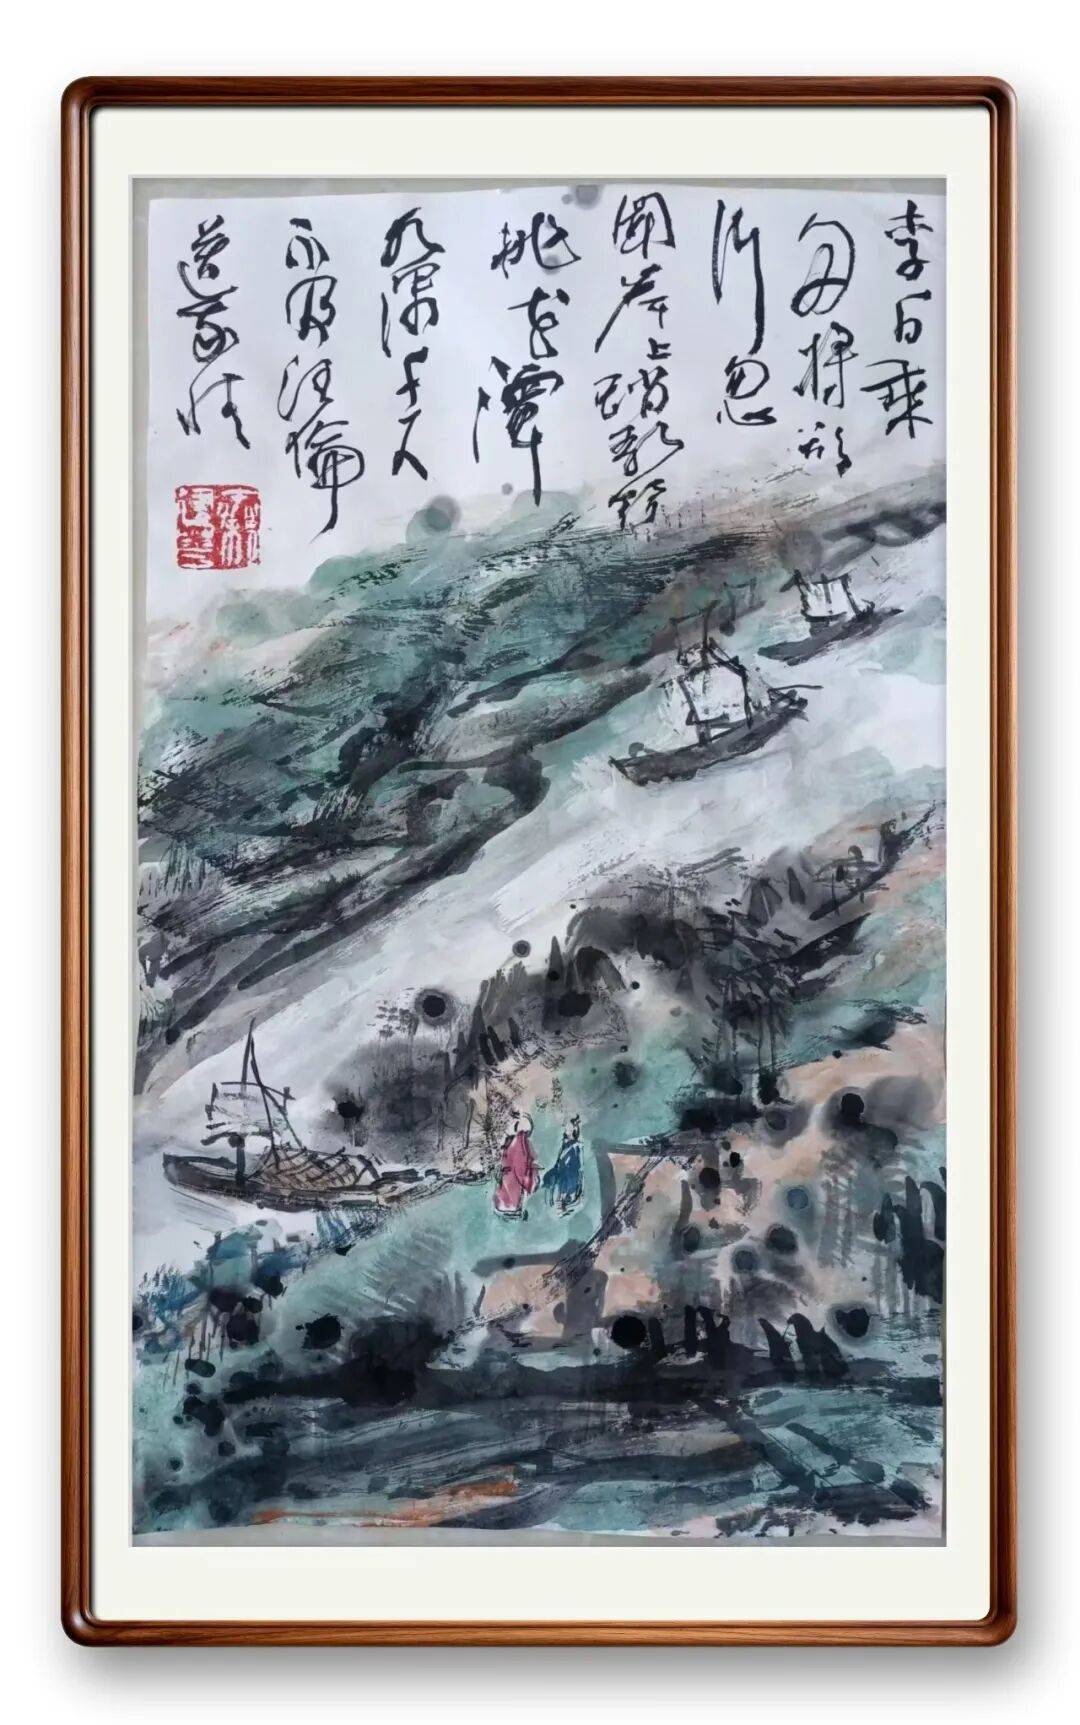 李白乘
舟将欲
行忽
聞岸上踏歌聲
桃花潭
水深千尺
不及汪倫
送我情